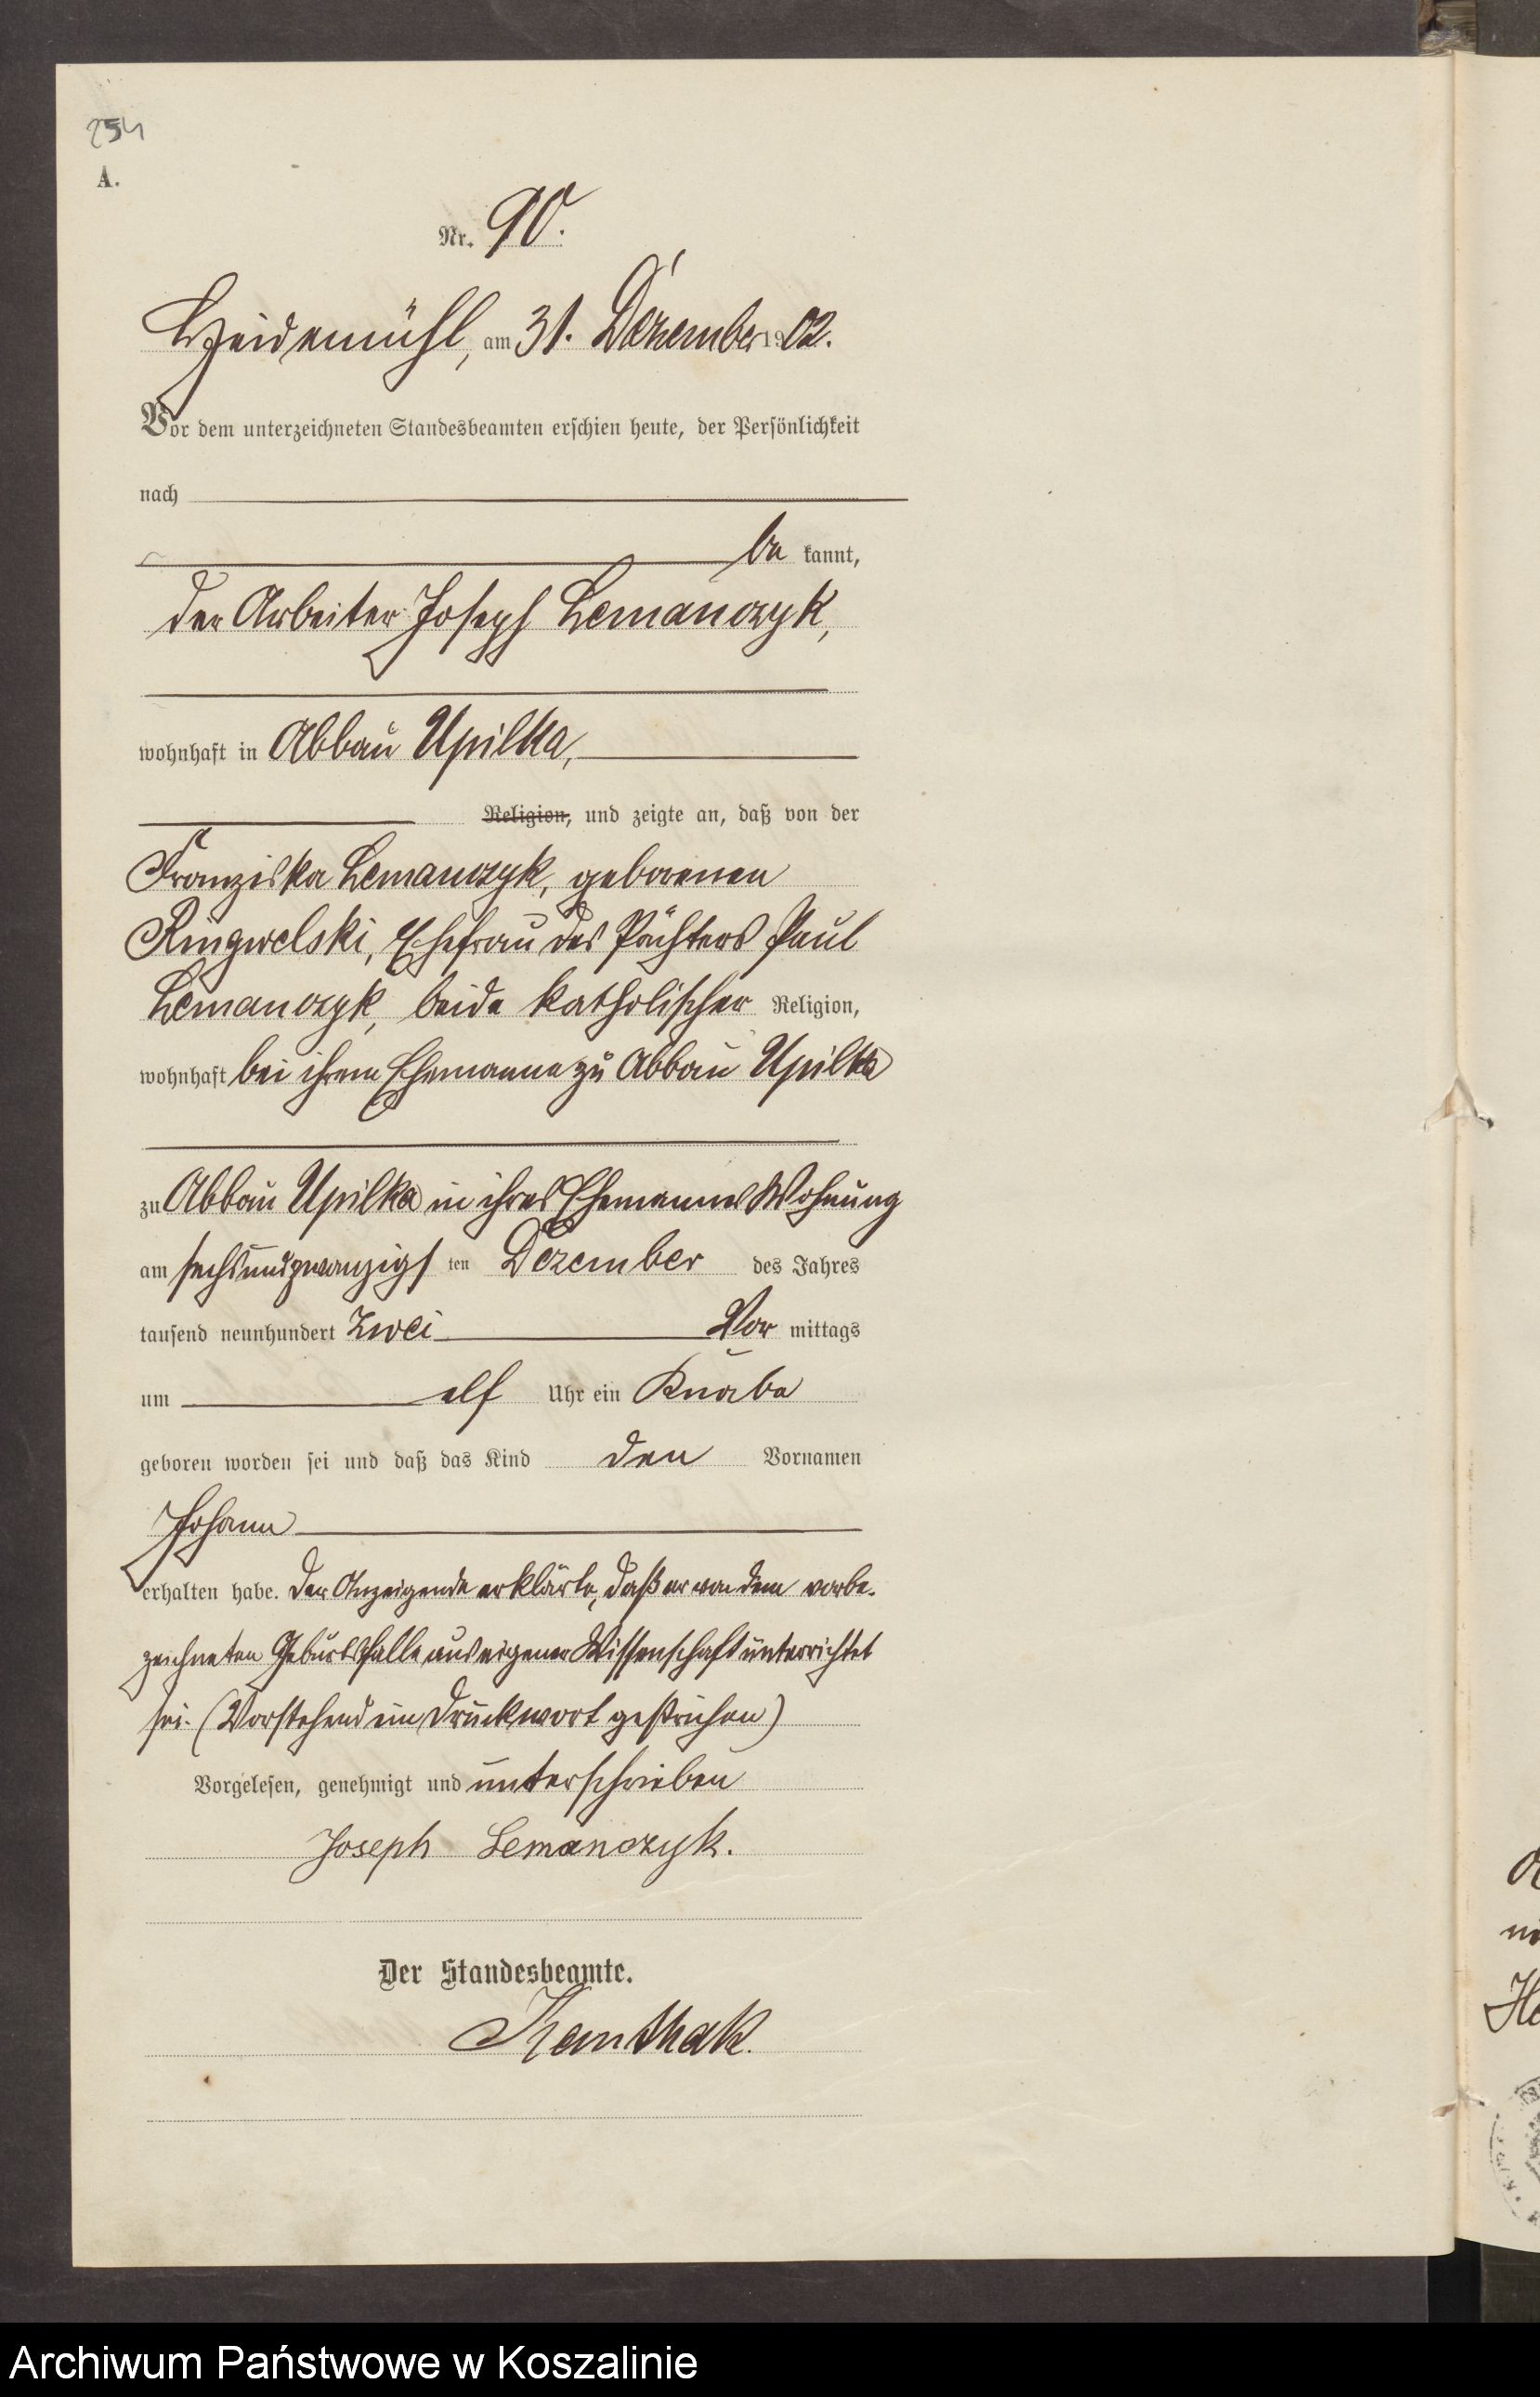 254
A.
Nr. 90.
Heidemühl, am 31. Dezember 1902.
Vor dem unterzeichneten Standesbeamten erschien heute, der Persönlichkeit
nach
be kannt,
der Arbeiter Joseph Lemańczyk,
wohnhaft in Abbau Upilka,
Religion, und zeigte an, daß von der
Franziska Lemanczyk, geborenen
Ringwelski, Ehefrau des Pächters Paul
Lemanczyk, beide katholischer Religion,
wohnhaft bei ihrem Ehemanne zu Abbau Upilka
zu Abbau Upilka in ihres Ehemannes Wohnung
am sechsundzwanzigs ten Dezember des Jahres
tausend neunhundert zwei Vor mittags
um elf Uhr ein Knabe
geboren worden sei und daß das Kind den Vornamen
Johann
erhalten habe. Der Anzeigende erklärte, daß er von dem vorbe-
zeichneten Geburtsfalle aus eigener Wissenschaft unterrichtet
sei. (Vorstehend ein Druckwort gestrichen)
Vorgelesen, genehmigt und unterschrieben
Joseph Lemanczyk.
Der Standesbeamte.
Kemthak.
Archiwum Państwowe w Koszalinie